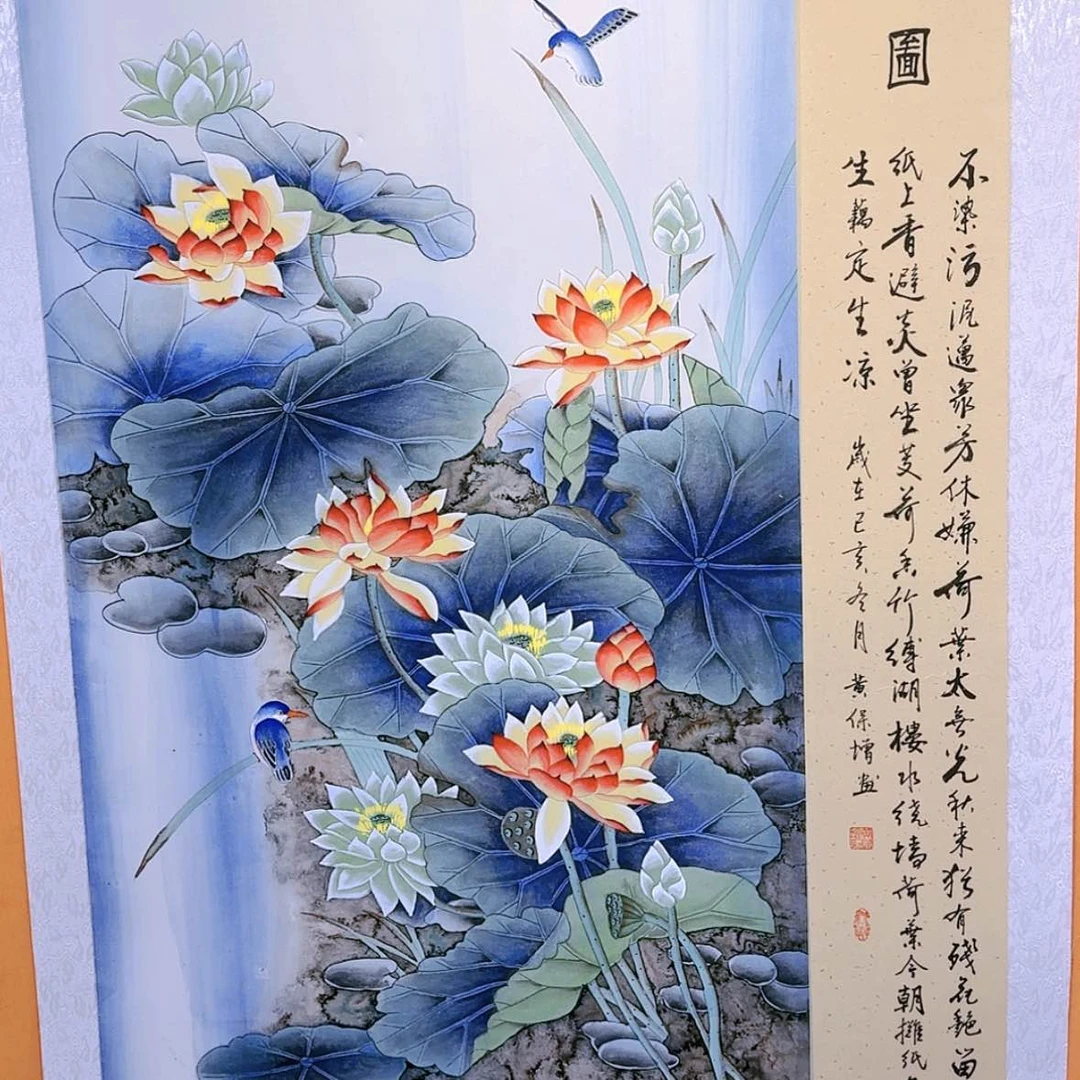 圖
不染污泥邁衆芳休嫌荷葉太無光秋来猶有殘花艷留
紙上香避炎曾坐芰荷香竹縛湖樓水繞墙荷葉今朝攤紙
生藕定生凉 歲在己亥冬月 黄保增畫